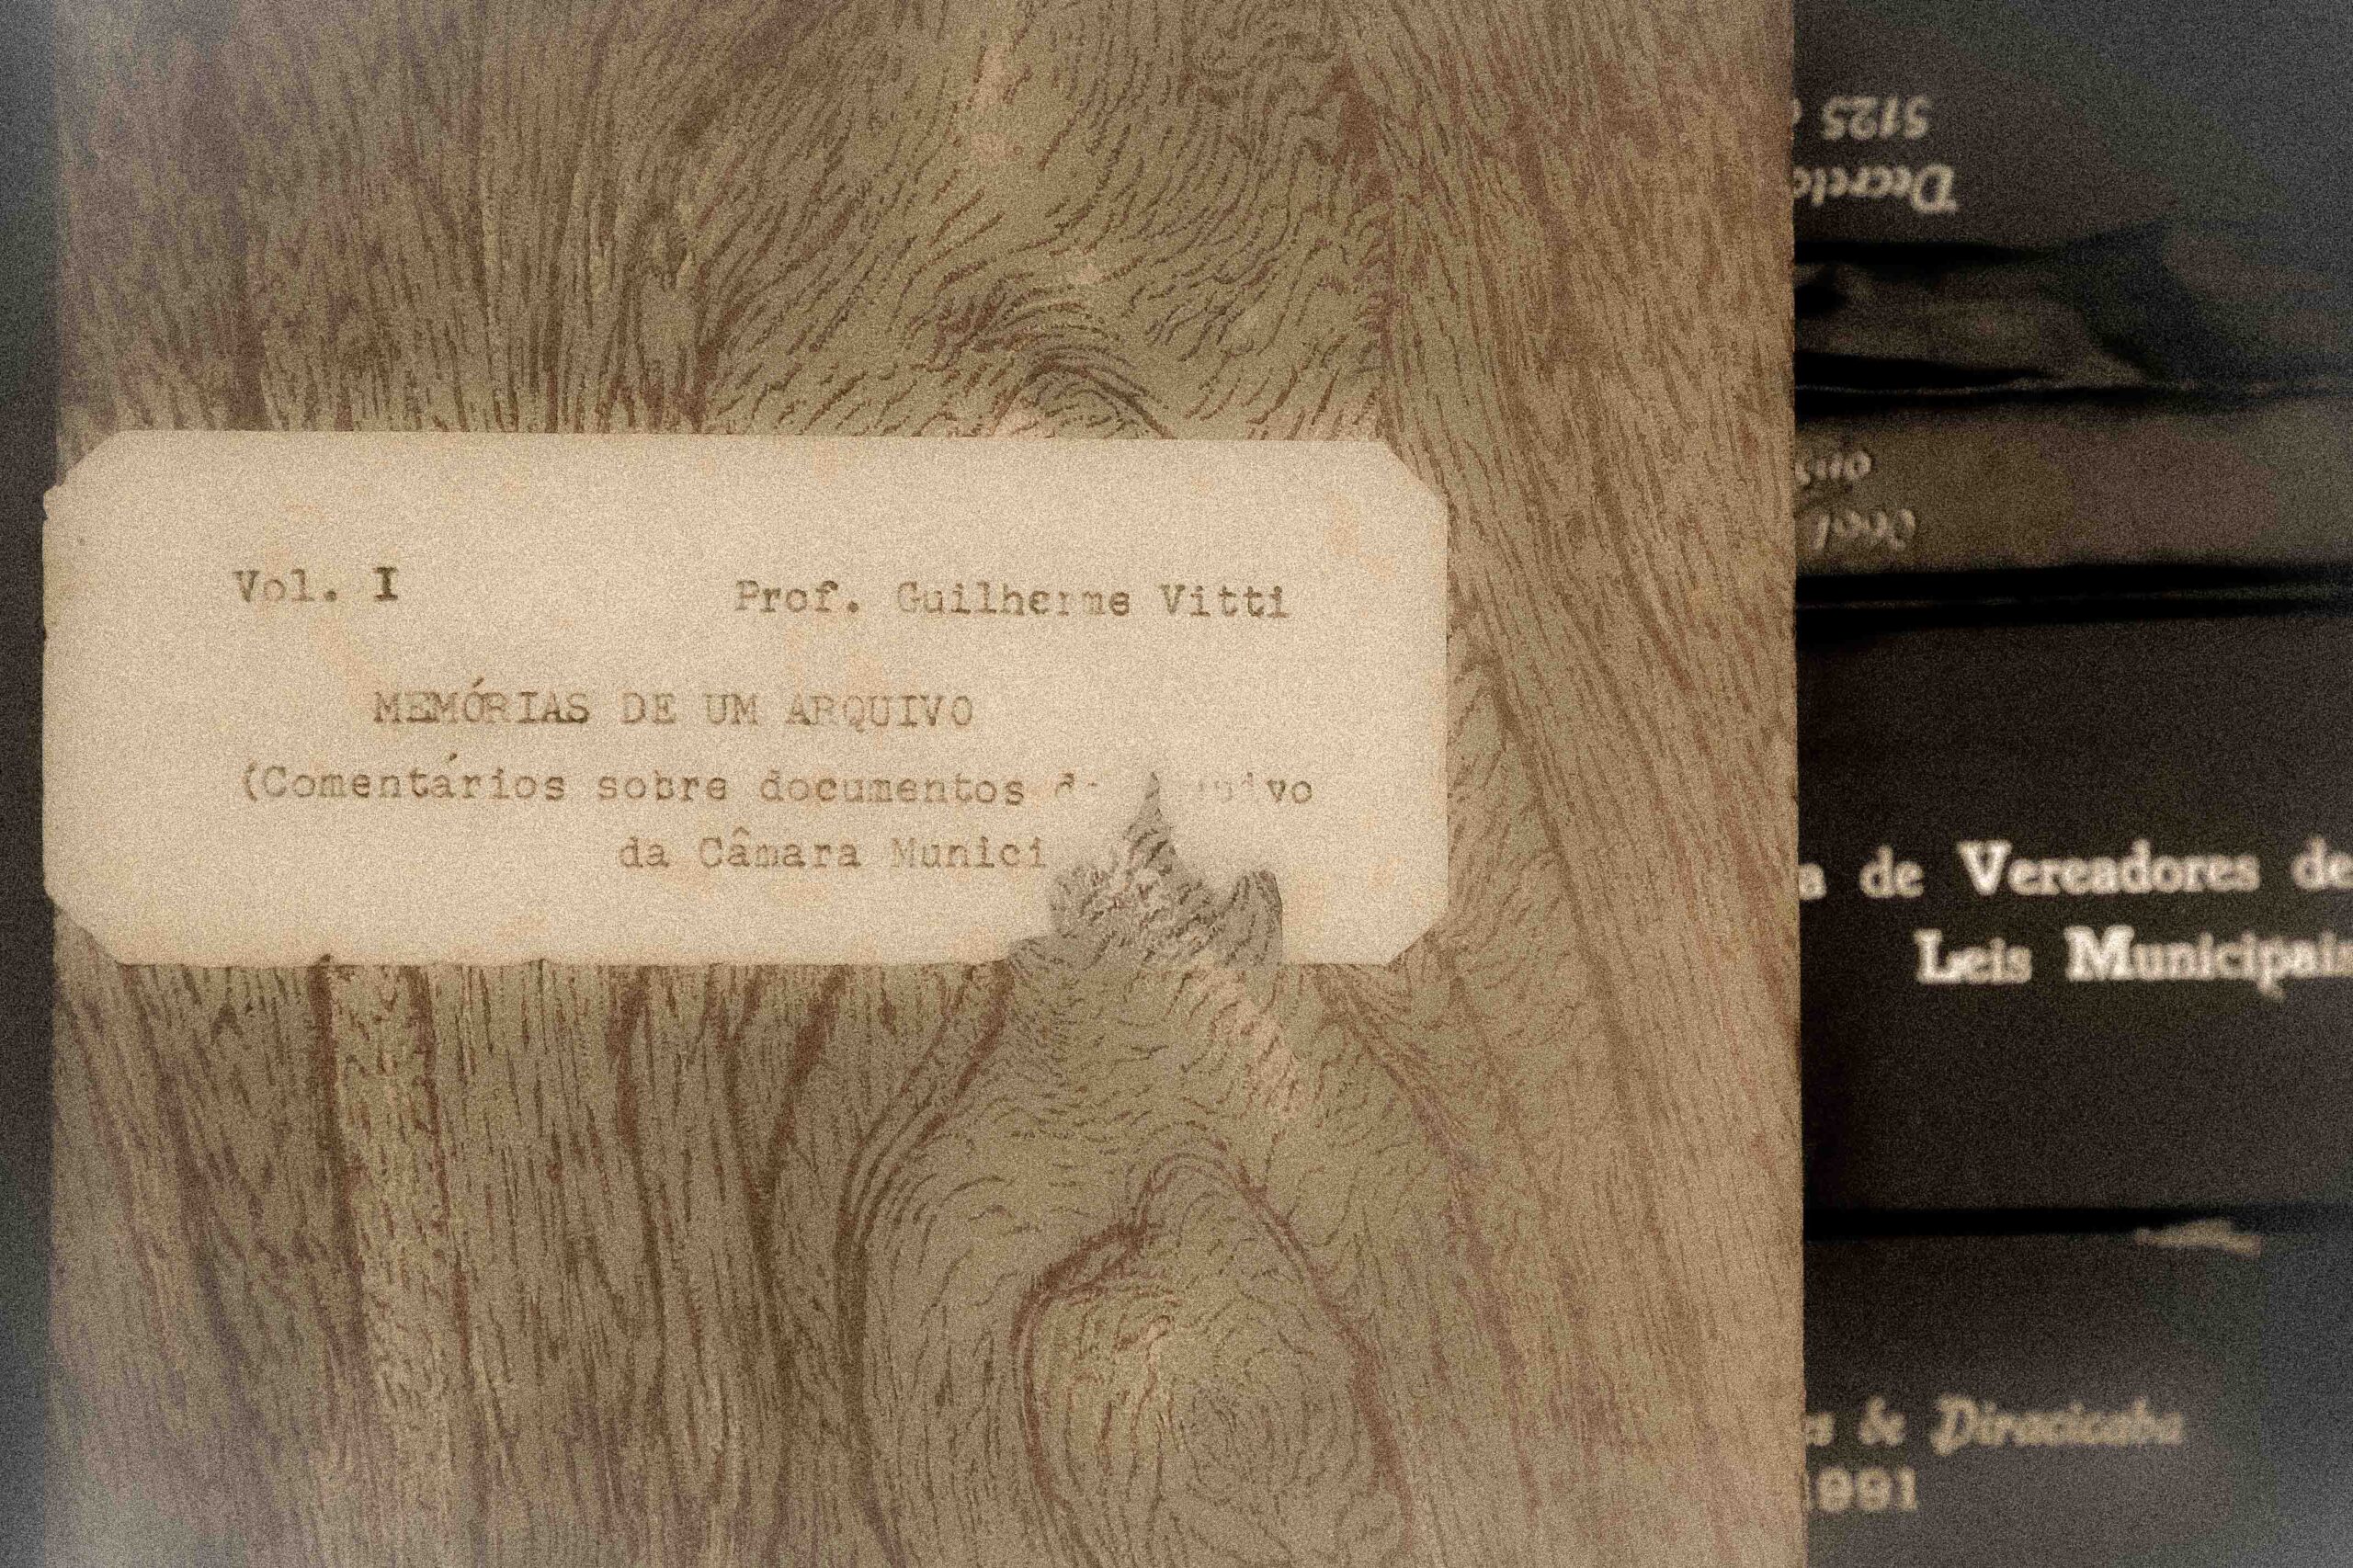 Vol. I Prof. Guilherme Vitti
MEMÓRIAS DE UM ARQUIVO
(Comentários sobre documentos
da Câmara Munici
5125
Decreto
a de Vereadores de
Leis Municipais
es de Piracicaba
1991